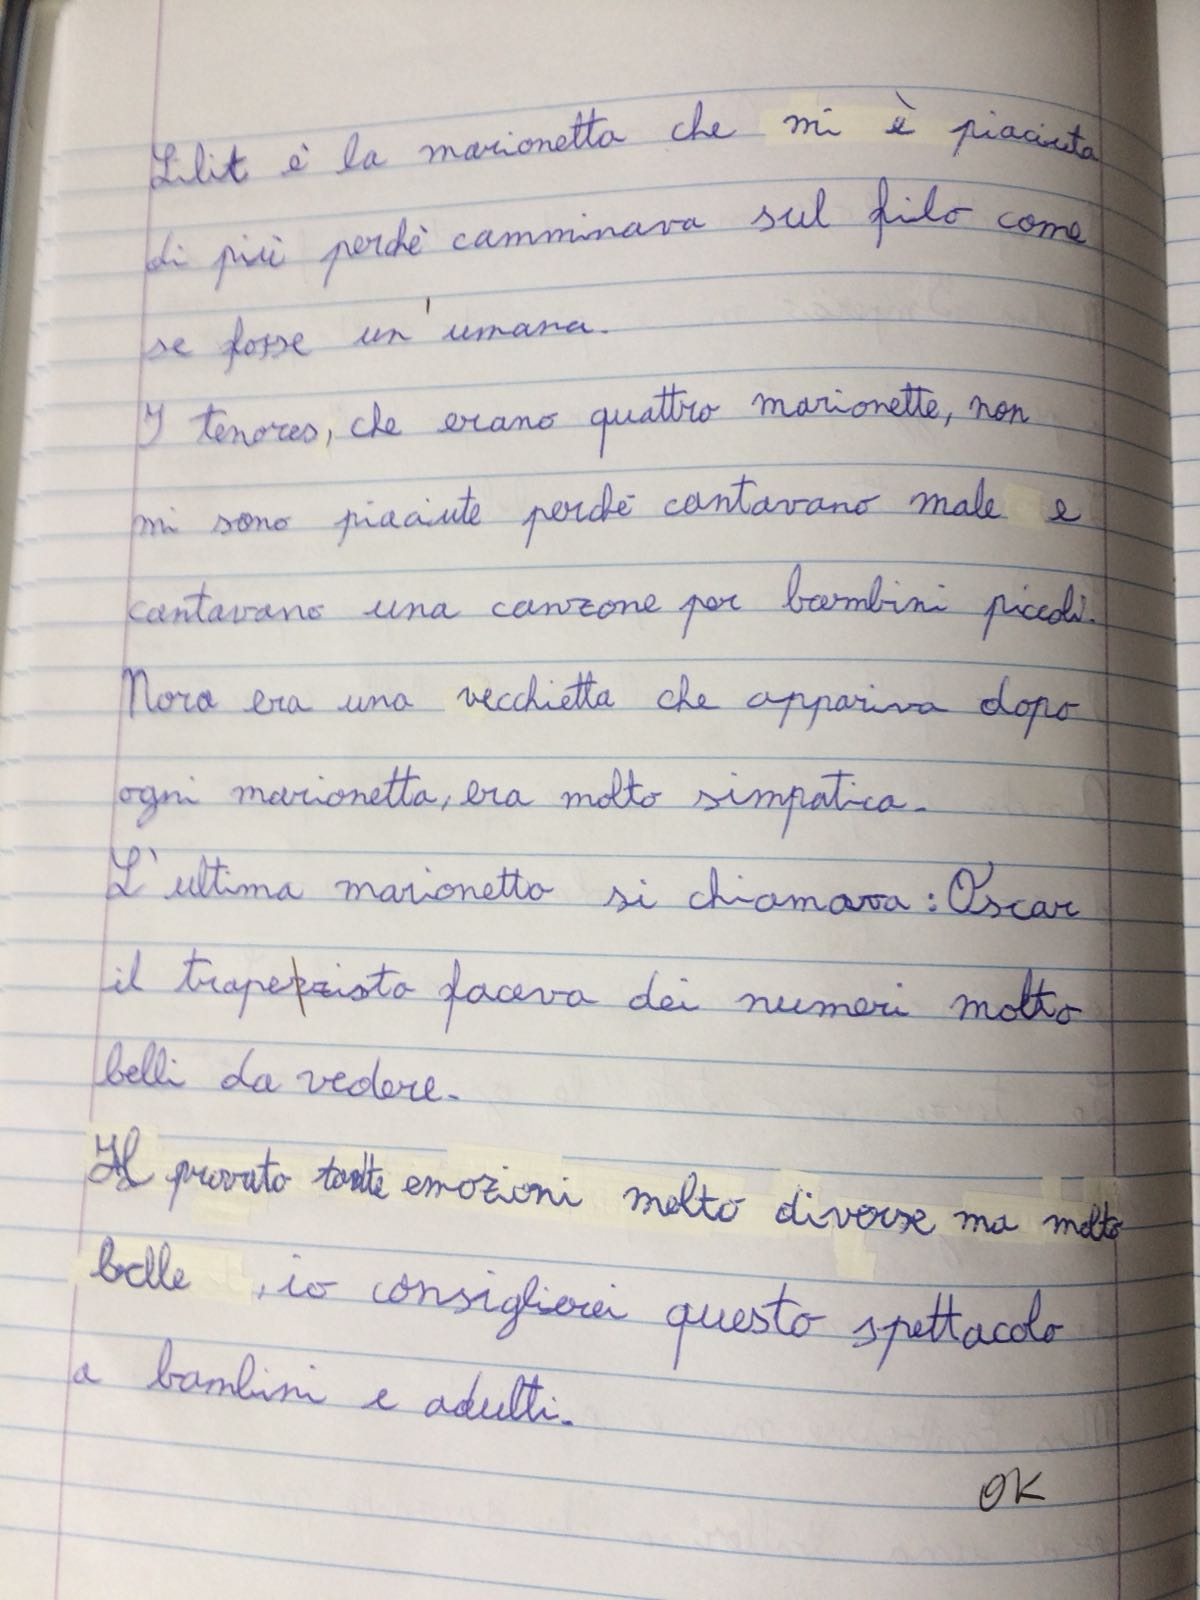 Lilit è la marionetta che mi è piaciuta
di più perchè camminava sul filo come
se fosse un'umana.
I tenores, che erano quattro marionette, non
mi sono piaciute perchè cantavano male e
cantavano una canzone per bambini piccoli.
Nora era una vecchietta che appariva dopo
ogni marionetta, era molto simpatica.
L'ultima marionetta si chiamava: Oscar
il trapezzista faceva dei numeri molto
belli da vedere.
provato tante emozioni molto diverse ma molto
belle, io consiglierei questo spettacolo
a bambini e adulti.
OK